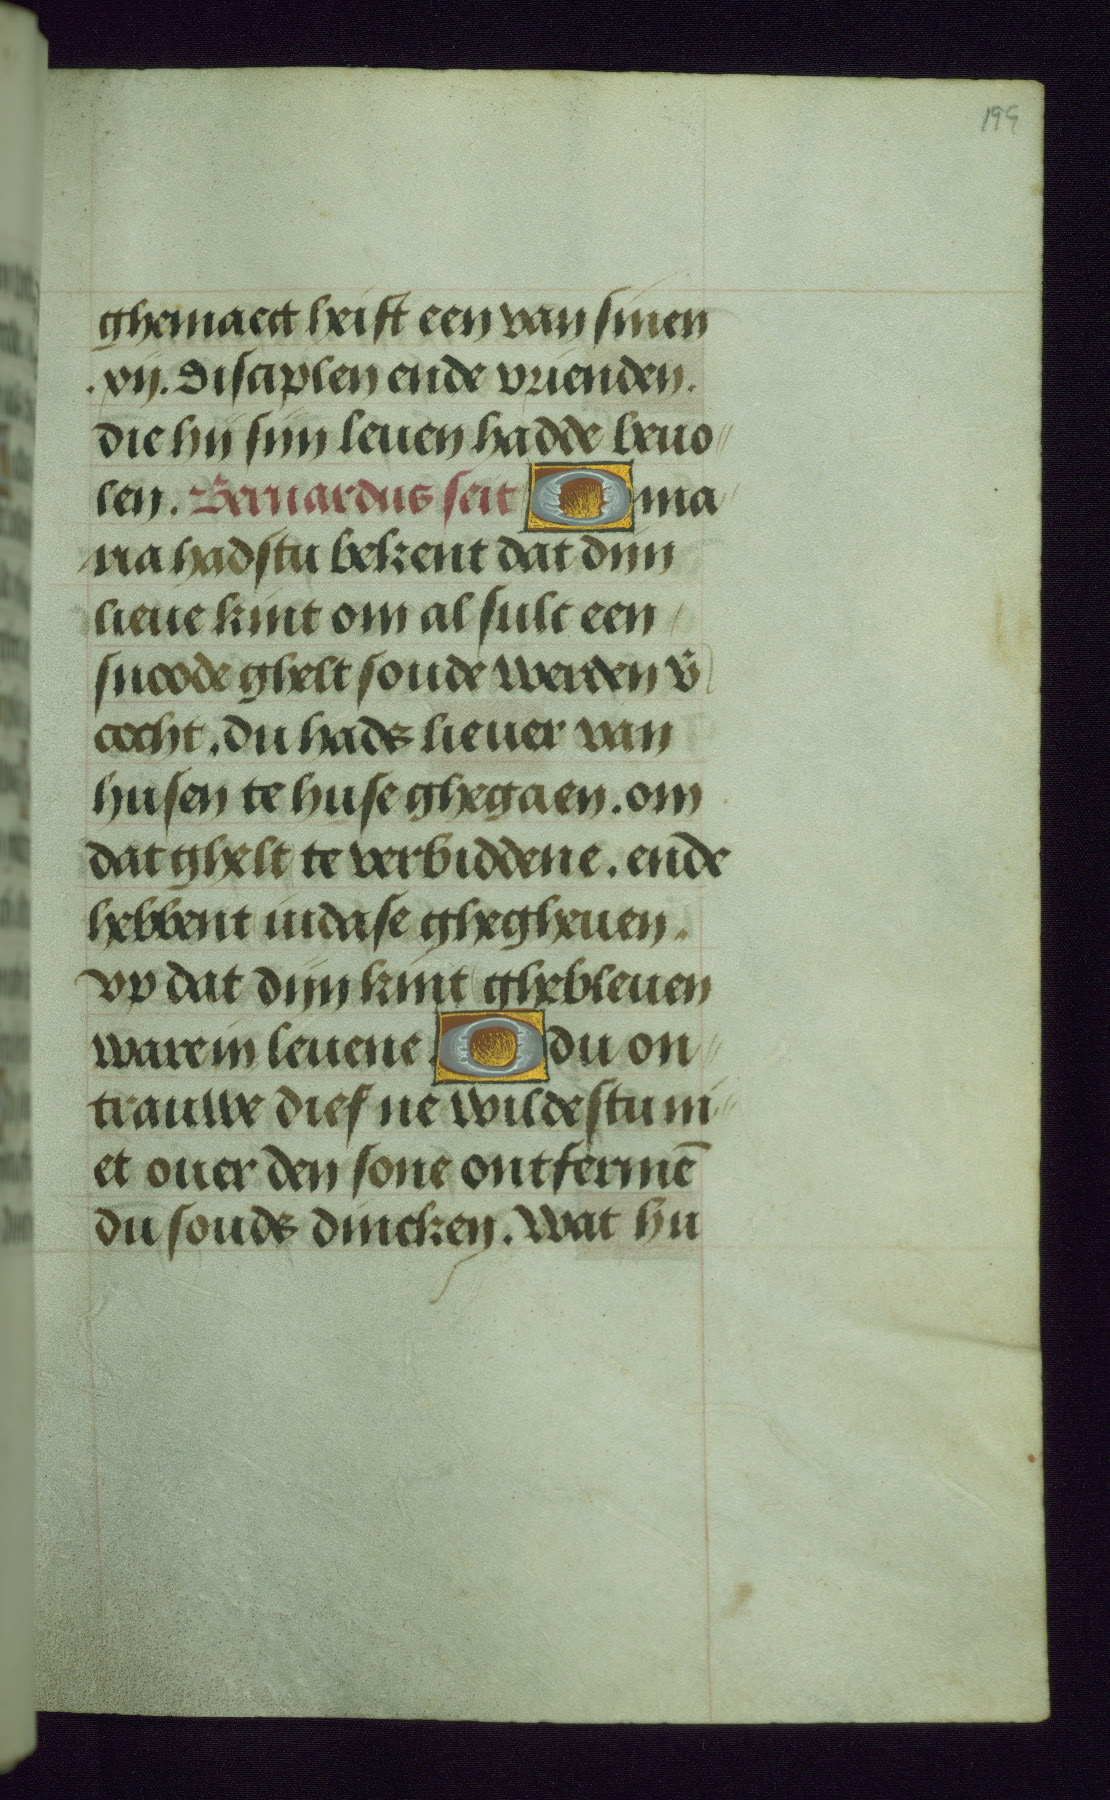 195
ghemaect heift een van sinen
.xij. disciplen ende vrienden.
die hij sijn leuen hadde beuo//
len. Bernardus seit O ma/
ria hadstu bekent dat dijn
lieue kint om al sulc een /
snoode ghelt soude werden v̄
cocht. du hads lieuer van
husen te huse ghegaen. om
dat ghelt te verbiddene. ende
hebbent iudase ghegheuen.
vp dat dijn kint ghebleuen
ware in leuene. O du on//
trauwe dief ne wildestu ni//
et ouer den sone ontfermē
du souds dincken. Wat hu